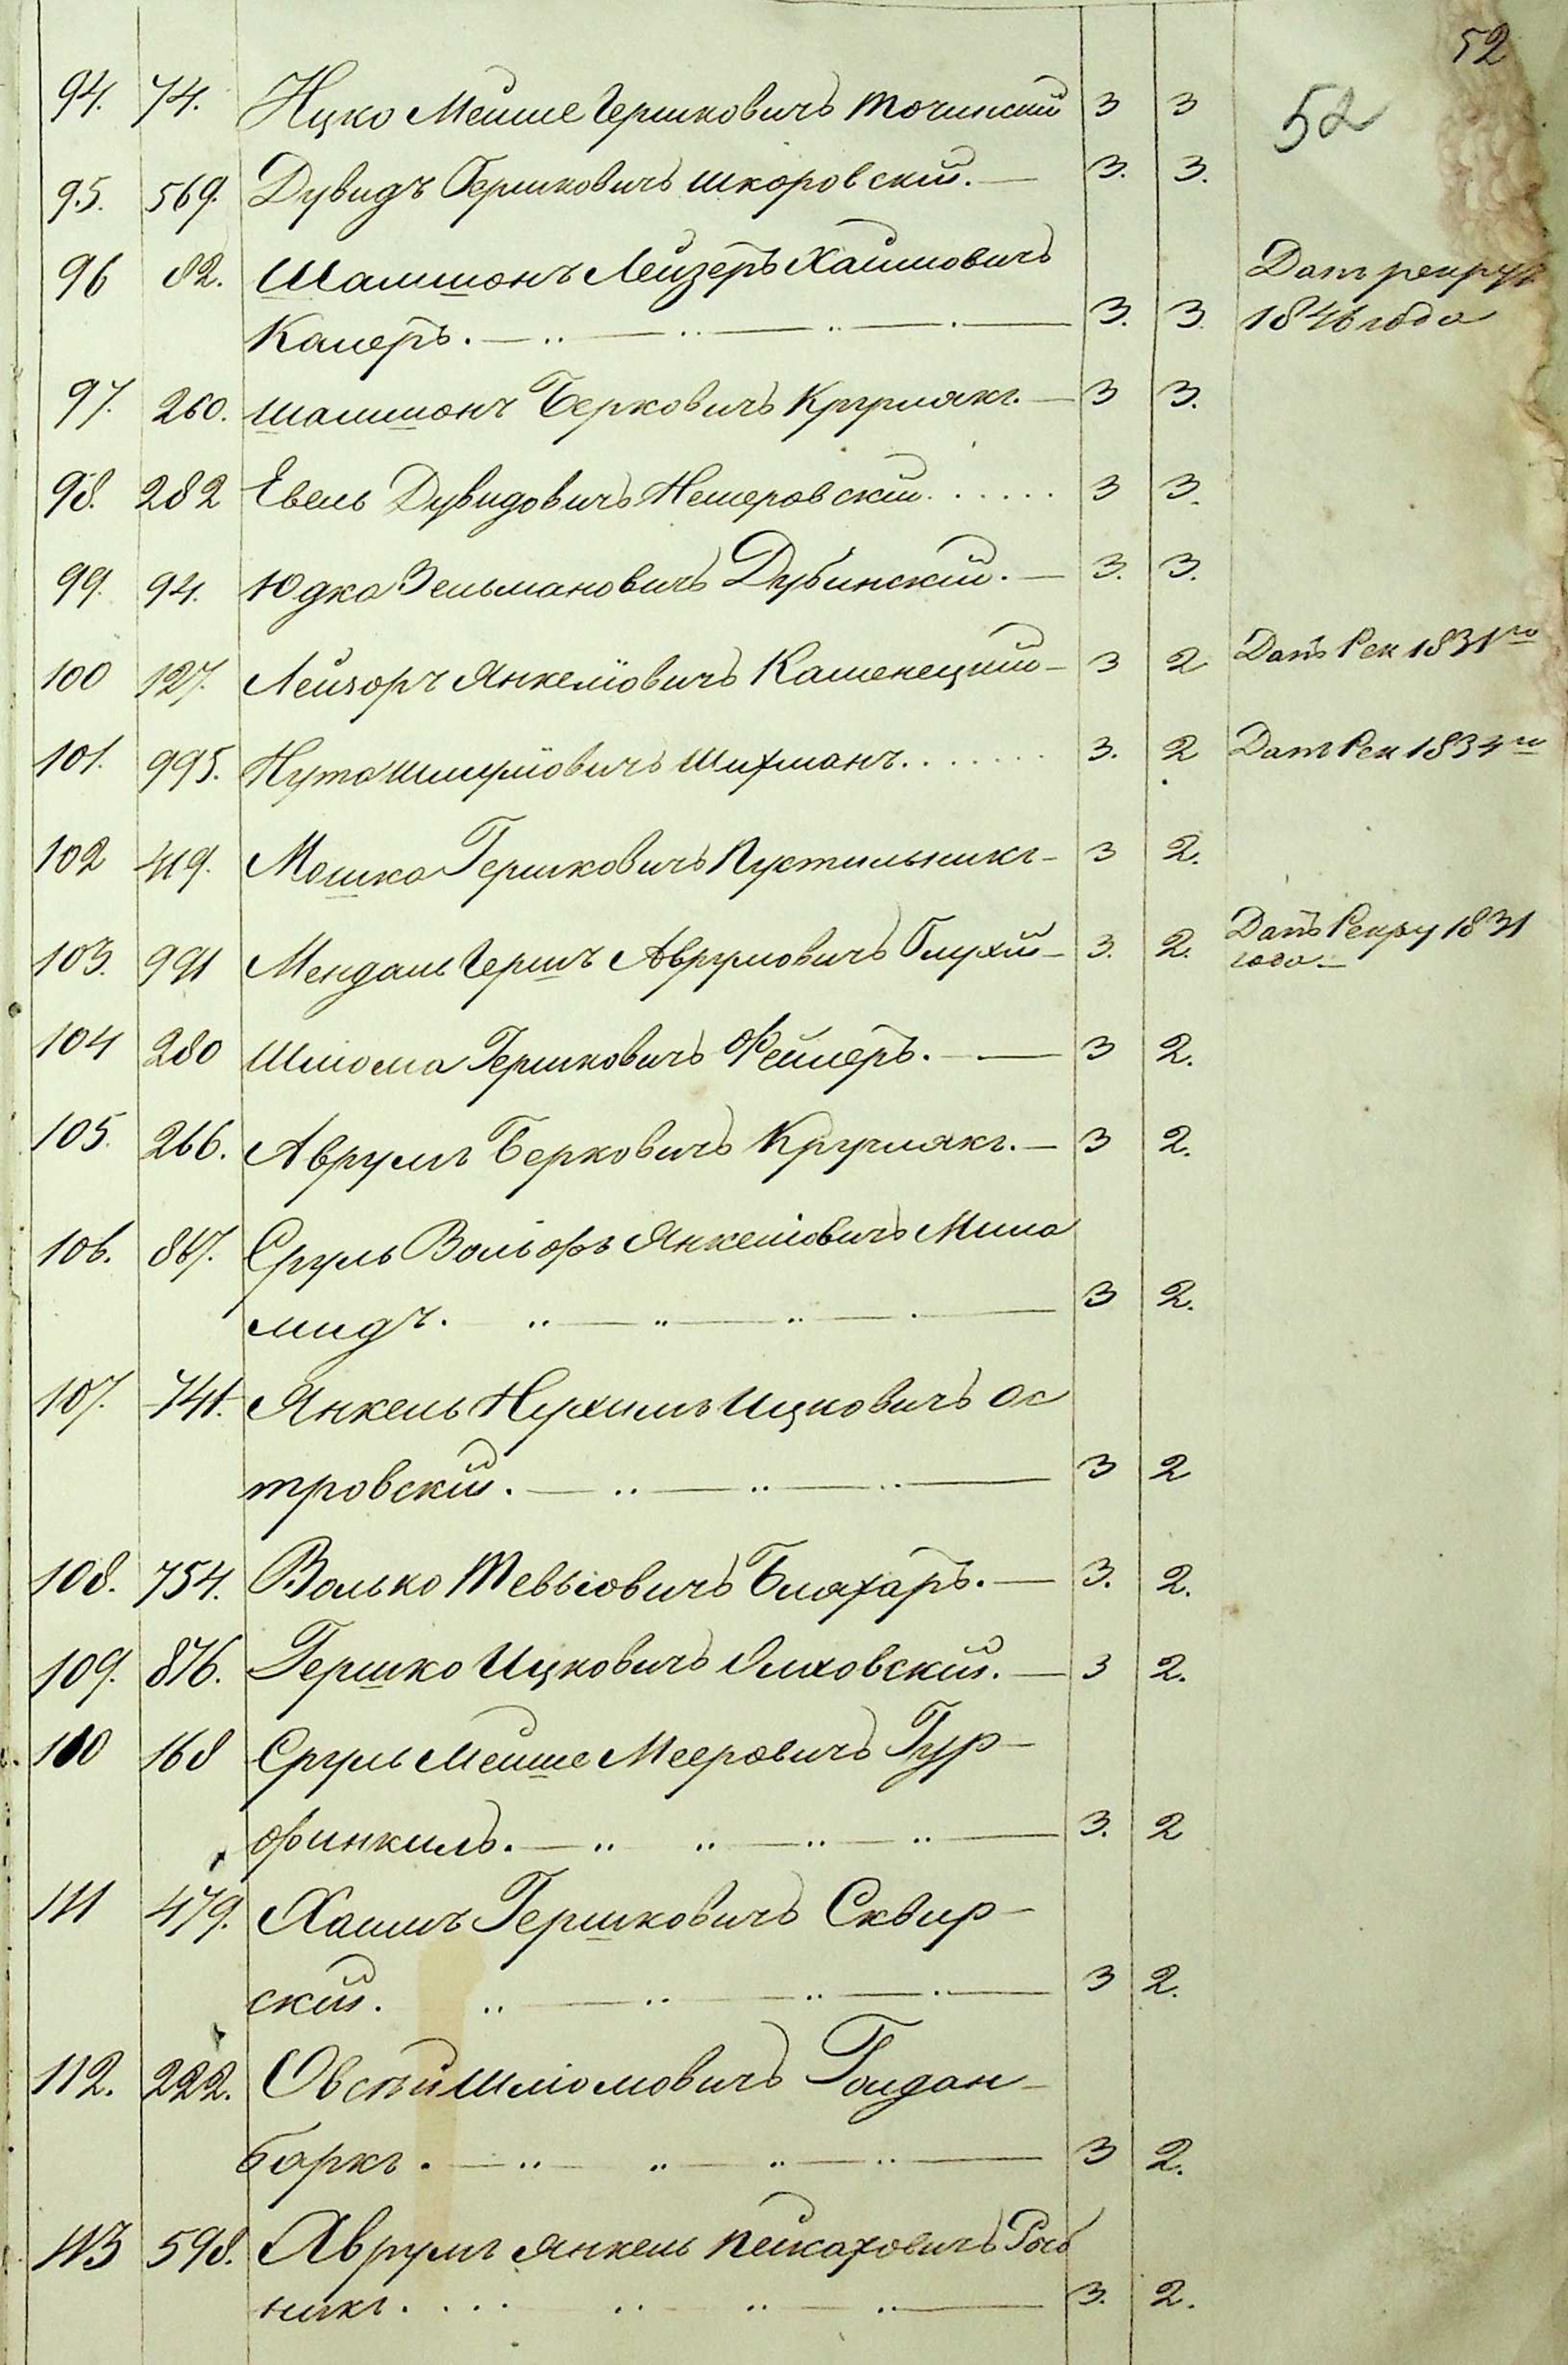 52
52
94. 74. Ицко Мейше Гершковичъ Точинский 3 3
95. 569. Дувидъ Гершковичъ Шкоровский. — 3. 3.
96 82. Шамшонъ Лейзеръ Хаимовичъ Дат рекрут
Камеръ. — 3. 3. 1846 года
97. 260. Шамшонъ Берковичъ Кругликъ. — 3 3.
98. 282 Евель Дувидовичъ Немеровский...... 3 3.
99. 94. Юдко Зельмановичъ Дубинский. — 3. 3.
100 127. Лейзоръ Янкелiовичъ Каменецкий — 3 2 Датъ Рек 1831го
101. 995. Нута Шмулiовичъ Шихманъ....... 3. 2 Датъ Рек 1834го
102 419. Мошко Гершковичъ Пустильникъ — 3 2.
103. 991 Мендаль Гершъ Аврумовичъ Глухий — 3. 2. Датъ Рекру 1831
года. —
104 280 Шлиома Гершковичъ Фельеръ. — 3 2.
105. 266. Аврумъ Берковичъ Кругликъ. — 3 2.
106. 847. Сруль Вольфъ Янкелiовичъ Мила
мидъ. — 3 2.
107. 741. Янкель Нухимъ Ицковичъ Ос
тровский. — 3 2
108. 754. Волько Тевьiовичъ Бляхаръ. — 3. 2.
109. 876. Гершко Ицковичъ Ольховский. — 3 2.
110 168 Сруль Мейше Мееровичъ Гур-
финкиль. — 3. 2
111 479. Хаимъ Гершковичъ Сквир-
ский. — 3 2.
112. 222. Овсѣй Шлiомовичъ Голдан-
баркъ. — 3 2.
113 598. Аврумъ Янкель Пейсаховичъ
никъ.... — 3. 2.